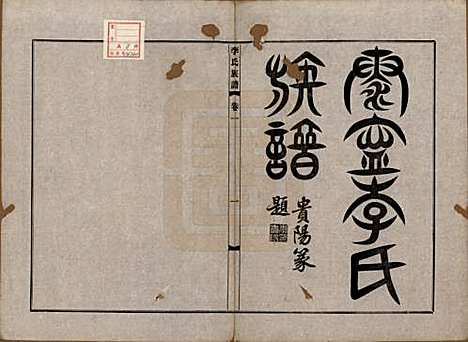 李氏
族譜
貴陽篆
題
李氏族譜 卷一